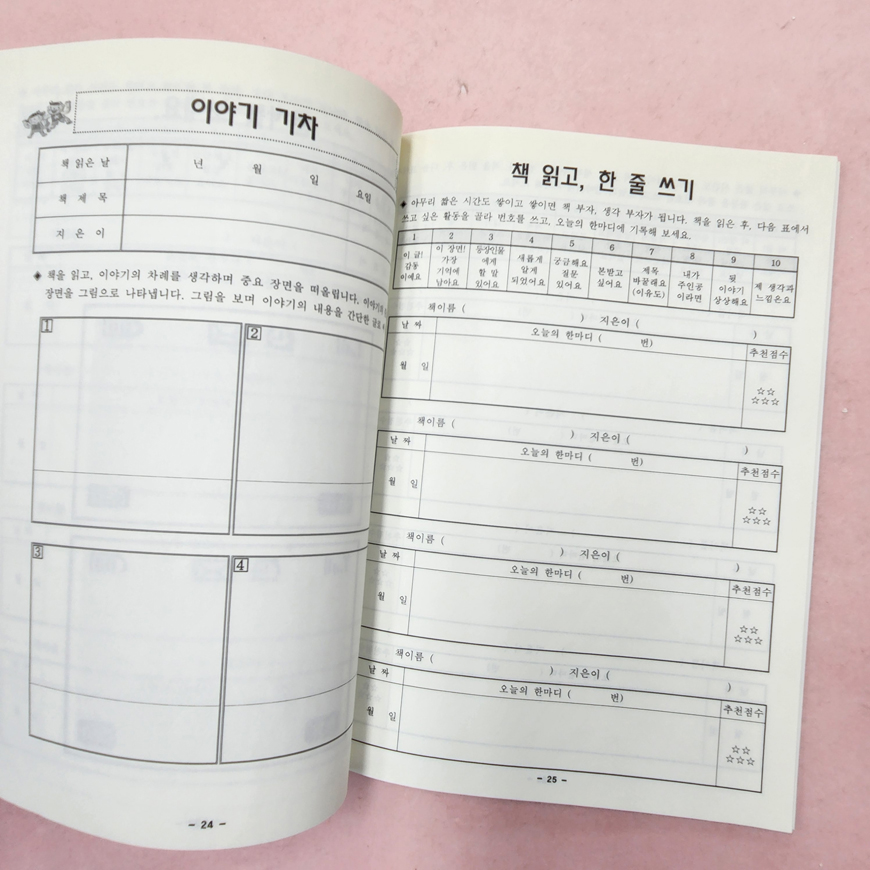 이야기 기차
책 읽은 날 년 월 일 요일
책 제 목
지 은 이
◈ 책을 읽고, 이야기의 차례를 생각하며 중요 장면을 떠올립니다. 이야기의
장면을 그림으로 나타냅니다. 그림을 보며 이야기의 내용을 간단한 글로
1
2
3
4
- 24 -
책 읽고, 한 줄 쓰기
◈ 아무리 짧은 시간도 쌓이고 쌓이면 책 부자, 생각 부자가 됩니다. 책을 읽은 후, 다음 표에서
쓰고 싶은 활동을 골라 번호를 쓰고, 오늘의 한마디에 기록해 보세요.
1 2 3 4 5 6 7 8 9 10
이 글! 감동 이에요
이 장면! 가장 기억에 남아요
등장인물 에게 할 말 있어요
새롭게 알게 되었어요
궁금해요 질문 있어요
본받고 싶어요
제목 바꿀래요 (이유도)
내가 주인공 이라면
뒷 이야기 상상해요
제 생각과 느낌은요
책이름 ( ) 지은이 ( )
날 짜 오늘의 한마디 ( 번) 추천점수
월 일 ☆☆
☆☆☆
책이름 ( ) 지은이 ( )
날 짜 오늘의 한마디 ( 번) 추천점수
월 일 ☆☆
☆☆☆
책이름 ( ) 지은이 ( )
날 짜 오늘의 한마디 ( 번) 추천점수
월 일 ☆☆
☆☆☆
책이름 ( ) 지은이 ( )
날 짜 오늘의 한마디 ( 번) 추천점수
월 일 ☆☆
☆☆☆
- 25 -